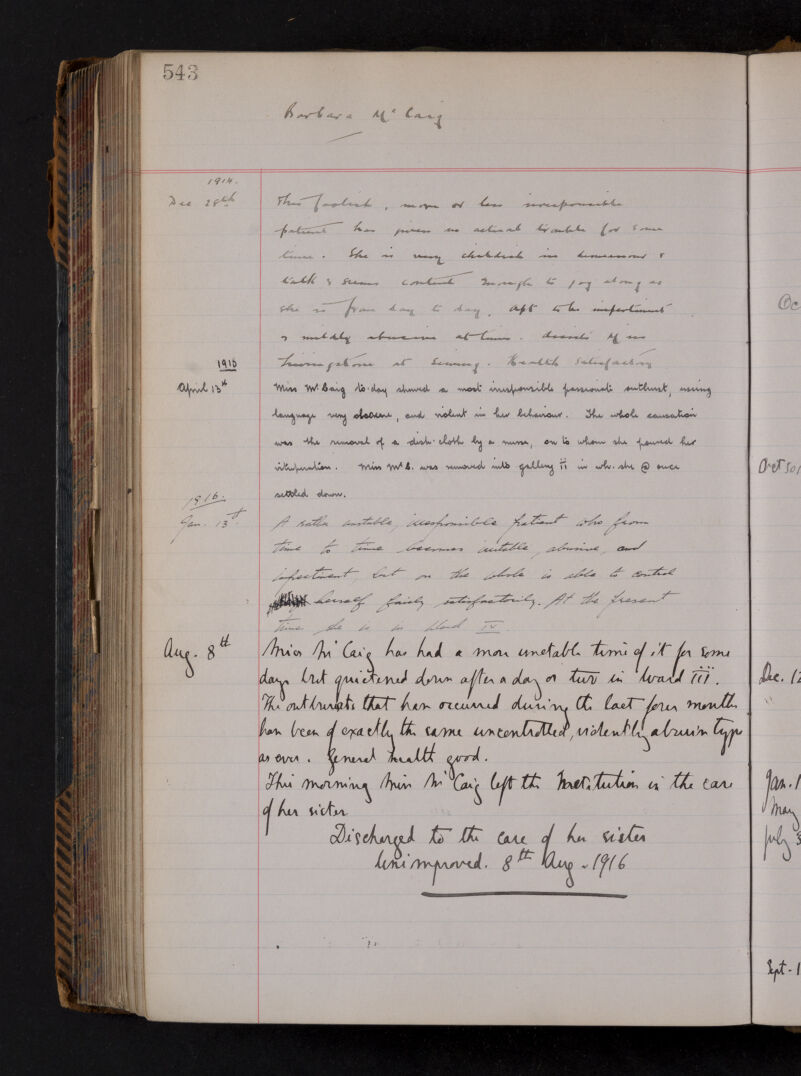 543
Barbara McCaig
1914.
Dec 28th This foolish, more or less irresponsible
patient has given no actual trouble for some
time. She is very childish in demeanour &
talk & seems content enough to jog along as
she is from day to day. Apt to be impertinent
& mildly abusive at times. Assists
at sewing. Health satisfactory
1915
April 13th Miss McCaig to-day showed a most irresponsible passionate outburst, using
language very obscene, and violent in her behaviour. The whole causation
was the removal of a dish-cloth by a nurse, on to whom she poured her
vituperation. Miss McC. was removed into gallery II in wh. she @ once
settled down.
1916.
Jan. 13th A rather unstable, irresponsible patient who from
time to time becomes irritable, abusive, and
impertinent, but on the whole is able to control
herself fairly satisfactorily. At the present
time she is in Ward IV.
Aug. 8th Miss McCaig has had a more unstable time of it for some
days but quietened down after a day or two in Ward III.
The outbursts that have occurred during the last four months
have been of exactly the same uncontrolled, violently abusive type
as ever. General health good.
This morning Miss McCaig left the Institution in the care
of her sister
Discharged to the care of her sister
Unimproved. 8th Aug. 1916
Oc
Oct 30
Dec. 12
Jan. 1
May
July 3
Sept. 1